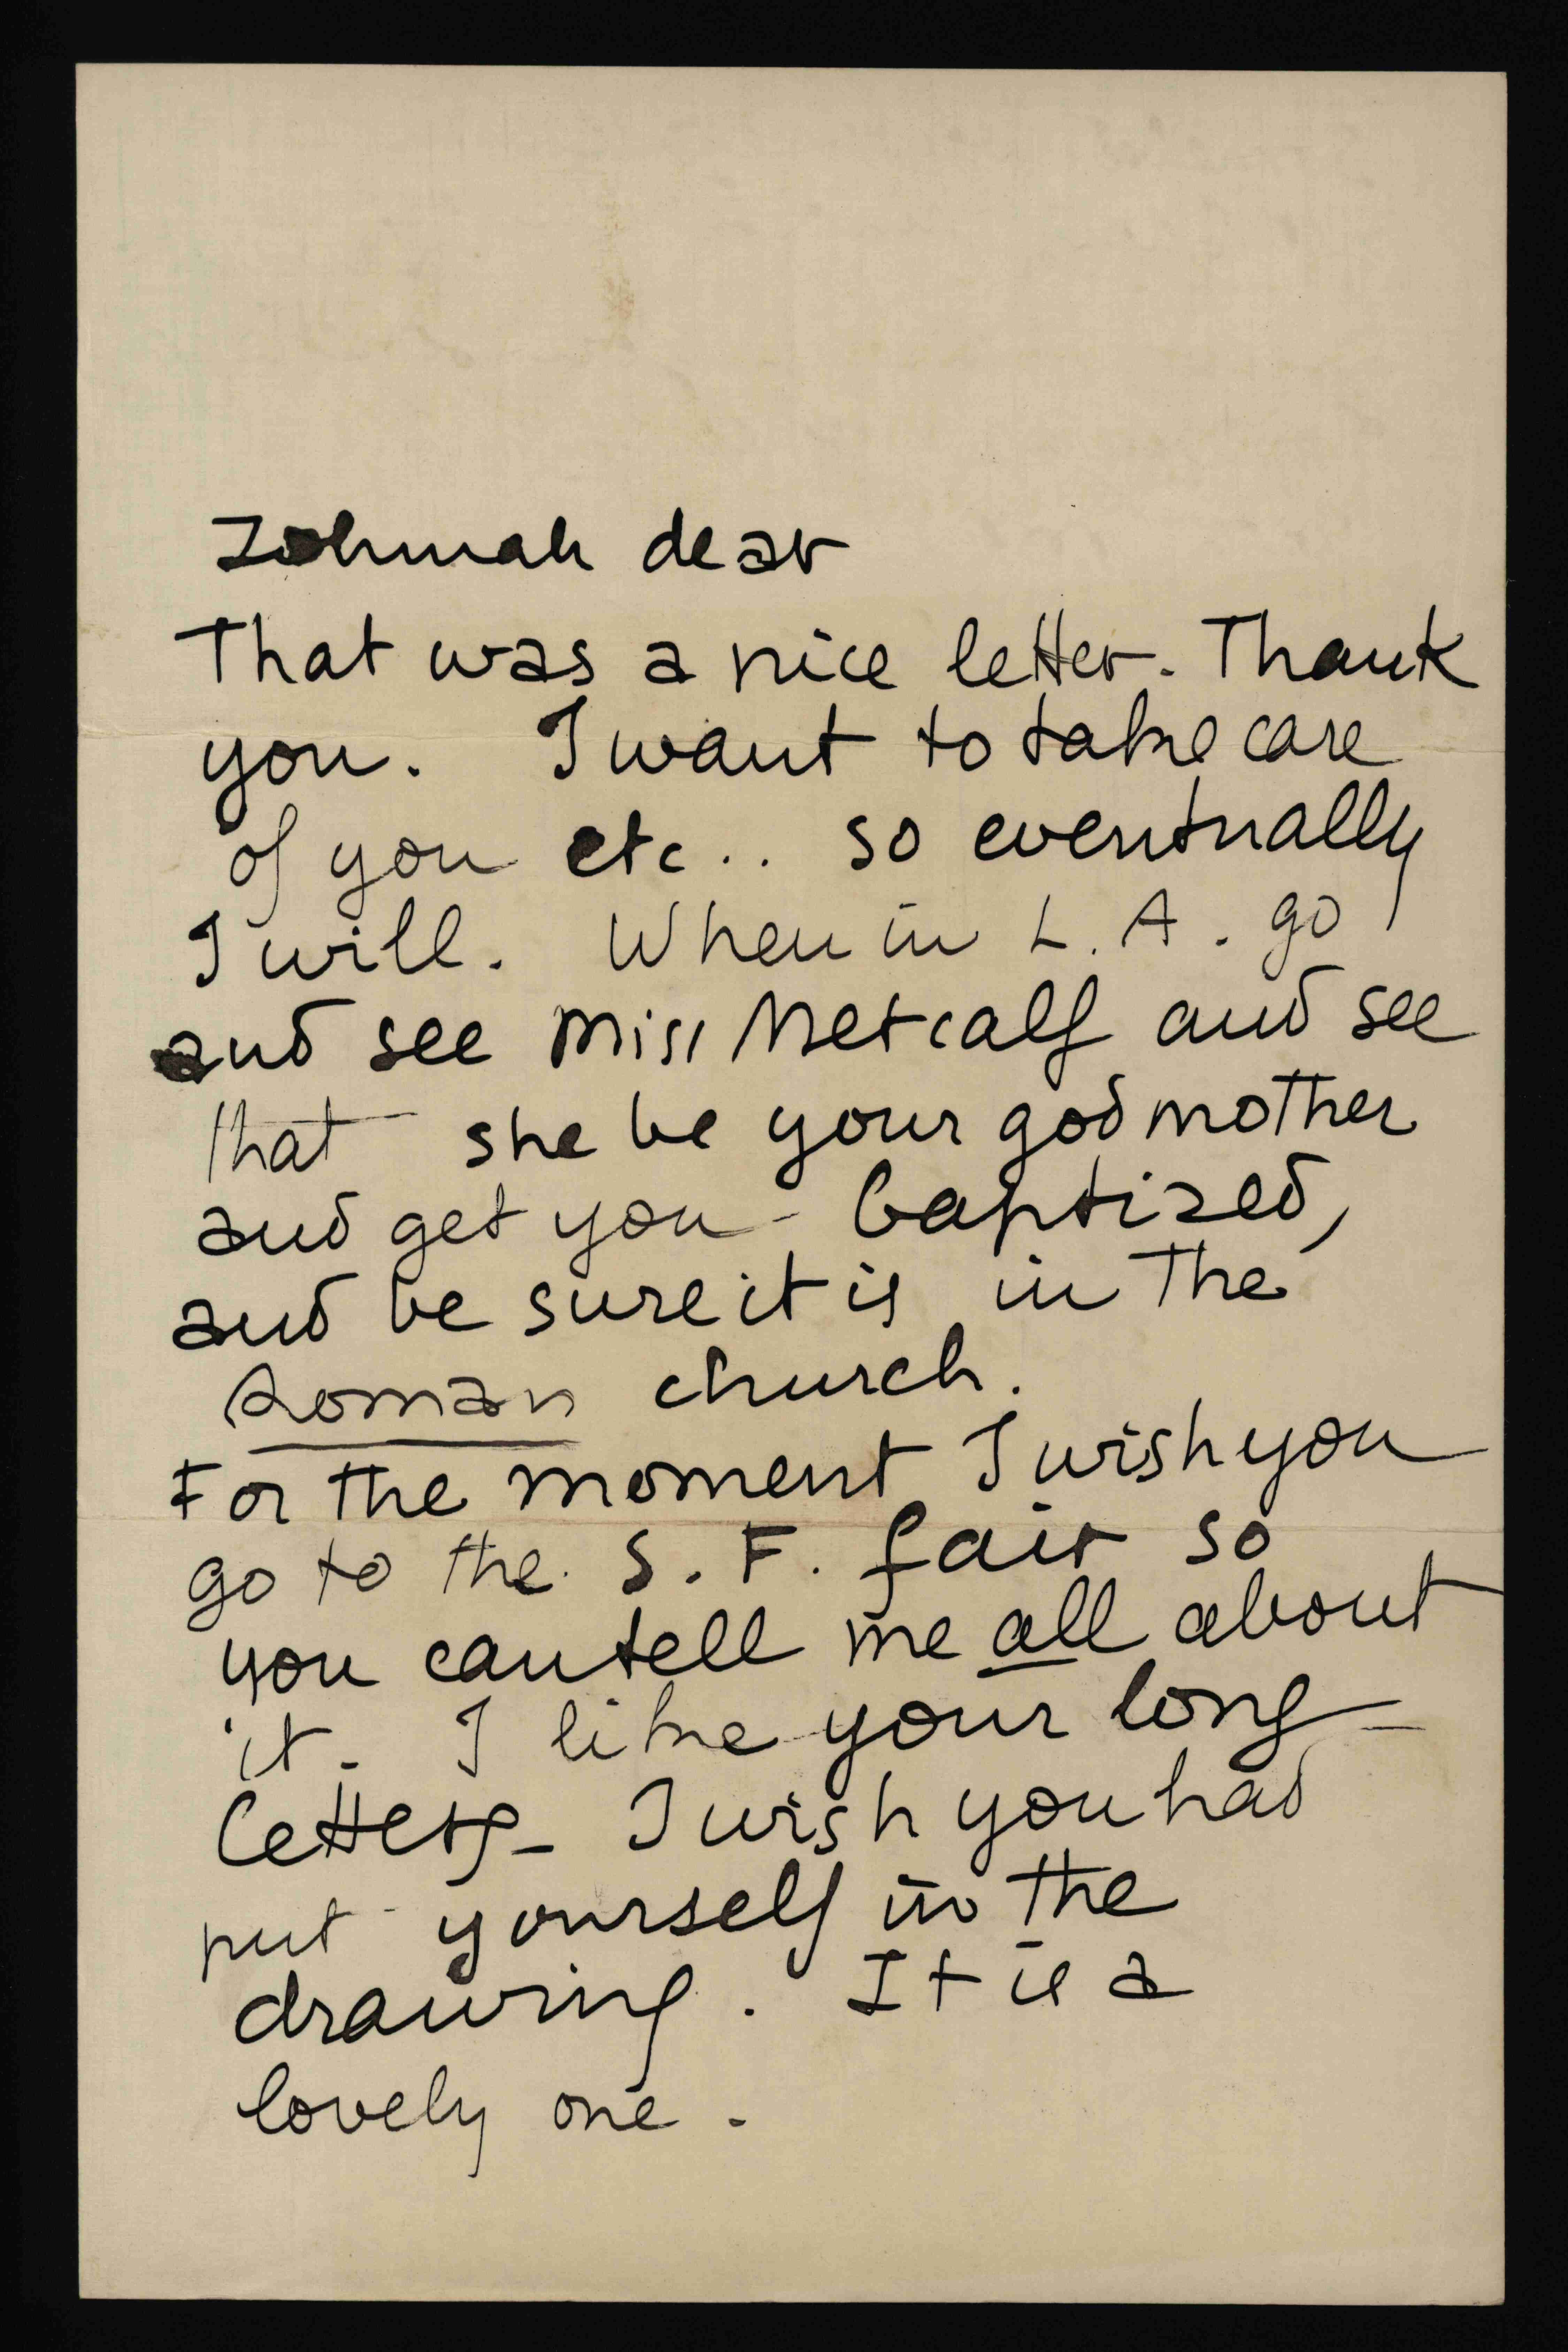 Zohmah dear
That was a nice letter. Thank
you. I want to take care
of you etc.. so eventually
I will. When in L.A. go
and see Miss Metcalf and see
that she be your godmother
and get you baptized,
and be sure it is in the
Roman church.
For the moment I wish you
go to the S.F. fair so
you can tell me all about
it. I like your long
letters - I wish you had
put yourself in the
drawing. It is a
lovely one.